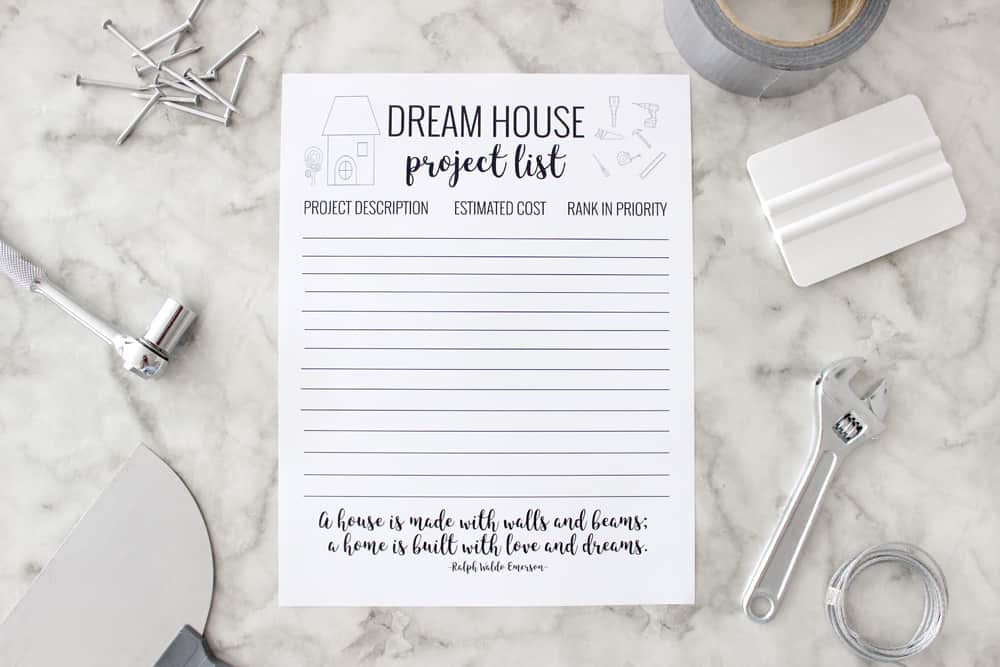 DREAM HOUSE
project list
PROJECT DESCRIPTION ESTIMATED COST RANK IN PRIORITY
A house is made with walls and beams;
a home is built with love and dreams.
-Ralph Waldo Emerson-